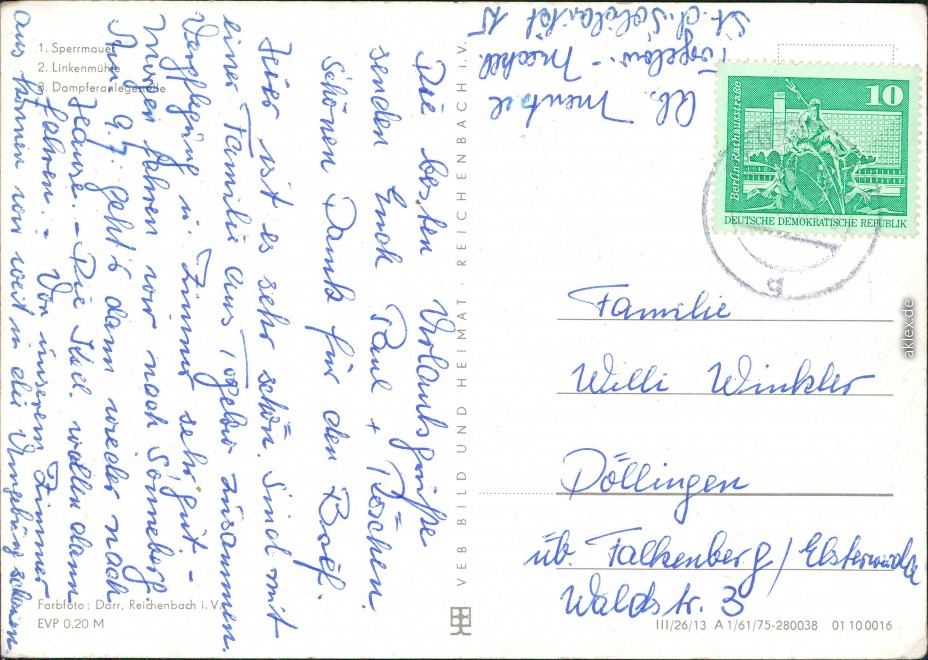 1. Sperrmauer
2. Linkenmühle
3. Dampferanlegestelle
Die besten Urlaubsgrüße
senden Euch Paul + Röschen.
Schönen Dank für den Brief.
Hier ist es sehr schön. Sind mit
einer Familie aus Torgelow zusammen.
Verpflegung u. Zimmer sehr gut. -
Morgen fahren wir nach Sonneberg.
Am 9.7. geht's dann wieder nach
Hause. - Die wollen dann
fahren. - Von unserem Zimmer
aus können wir weit in die Umgebung schauen.
Farbfoto: Darr, Reichenbach i. V.
EVP 0,20 M
VEB BILD UND HEIMAT · REICHENBACH i. V.
Ab. Mentzel
Torgelow - Meckl.
Str. d. Solidarität 15
Berlin, Rathausstraße
10
DEUTSCHE DEMOKRATISCHE REPUBLIK
Familie
Willi Winkler
Döllingen
üb. Falkenberg / Elsterwerda
Waldstr. 3
III/26/13 A 1/61/75-280038 01 10 0016
aklex.de